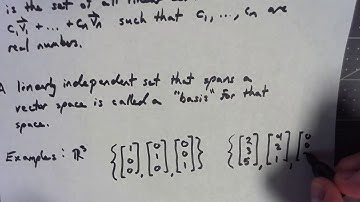 is the set of all linear
c₁v⃗₁ + ... + cₙv⃗ₙ such that c₁, ..., cₙ are
real numbers.
A linearly independent set that spans a
vector space is called a "basis" for that
space.
Examples: ℝ³ {[1 0 0], [0 1 0], [0 0 1]} {[2 3 5], [4 2 1], [0 0